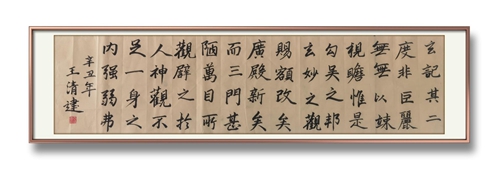 玄記其二
度非巨麗
無無以竦
視瞻惟是
勾吳之邦
玄妙之觀
賜額改矣
廣殿新矣
而三門甚
陋萬目所
觀辟之於
人神觀不
足一身之
内强弱弗
辛丑年
王清建